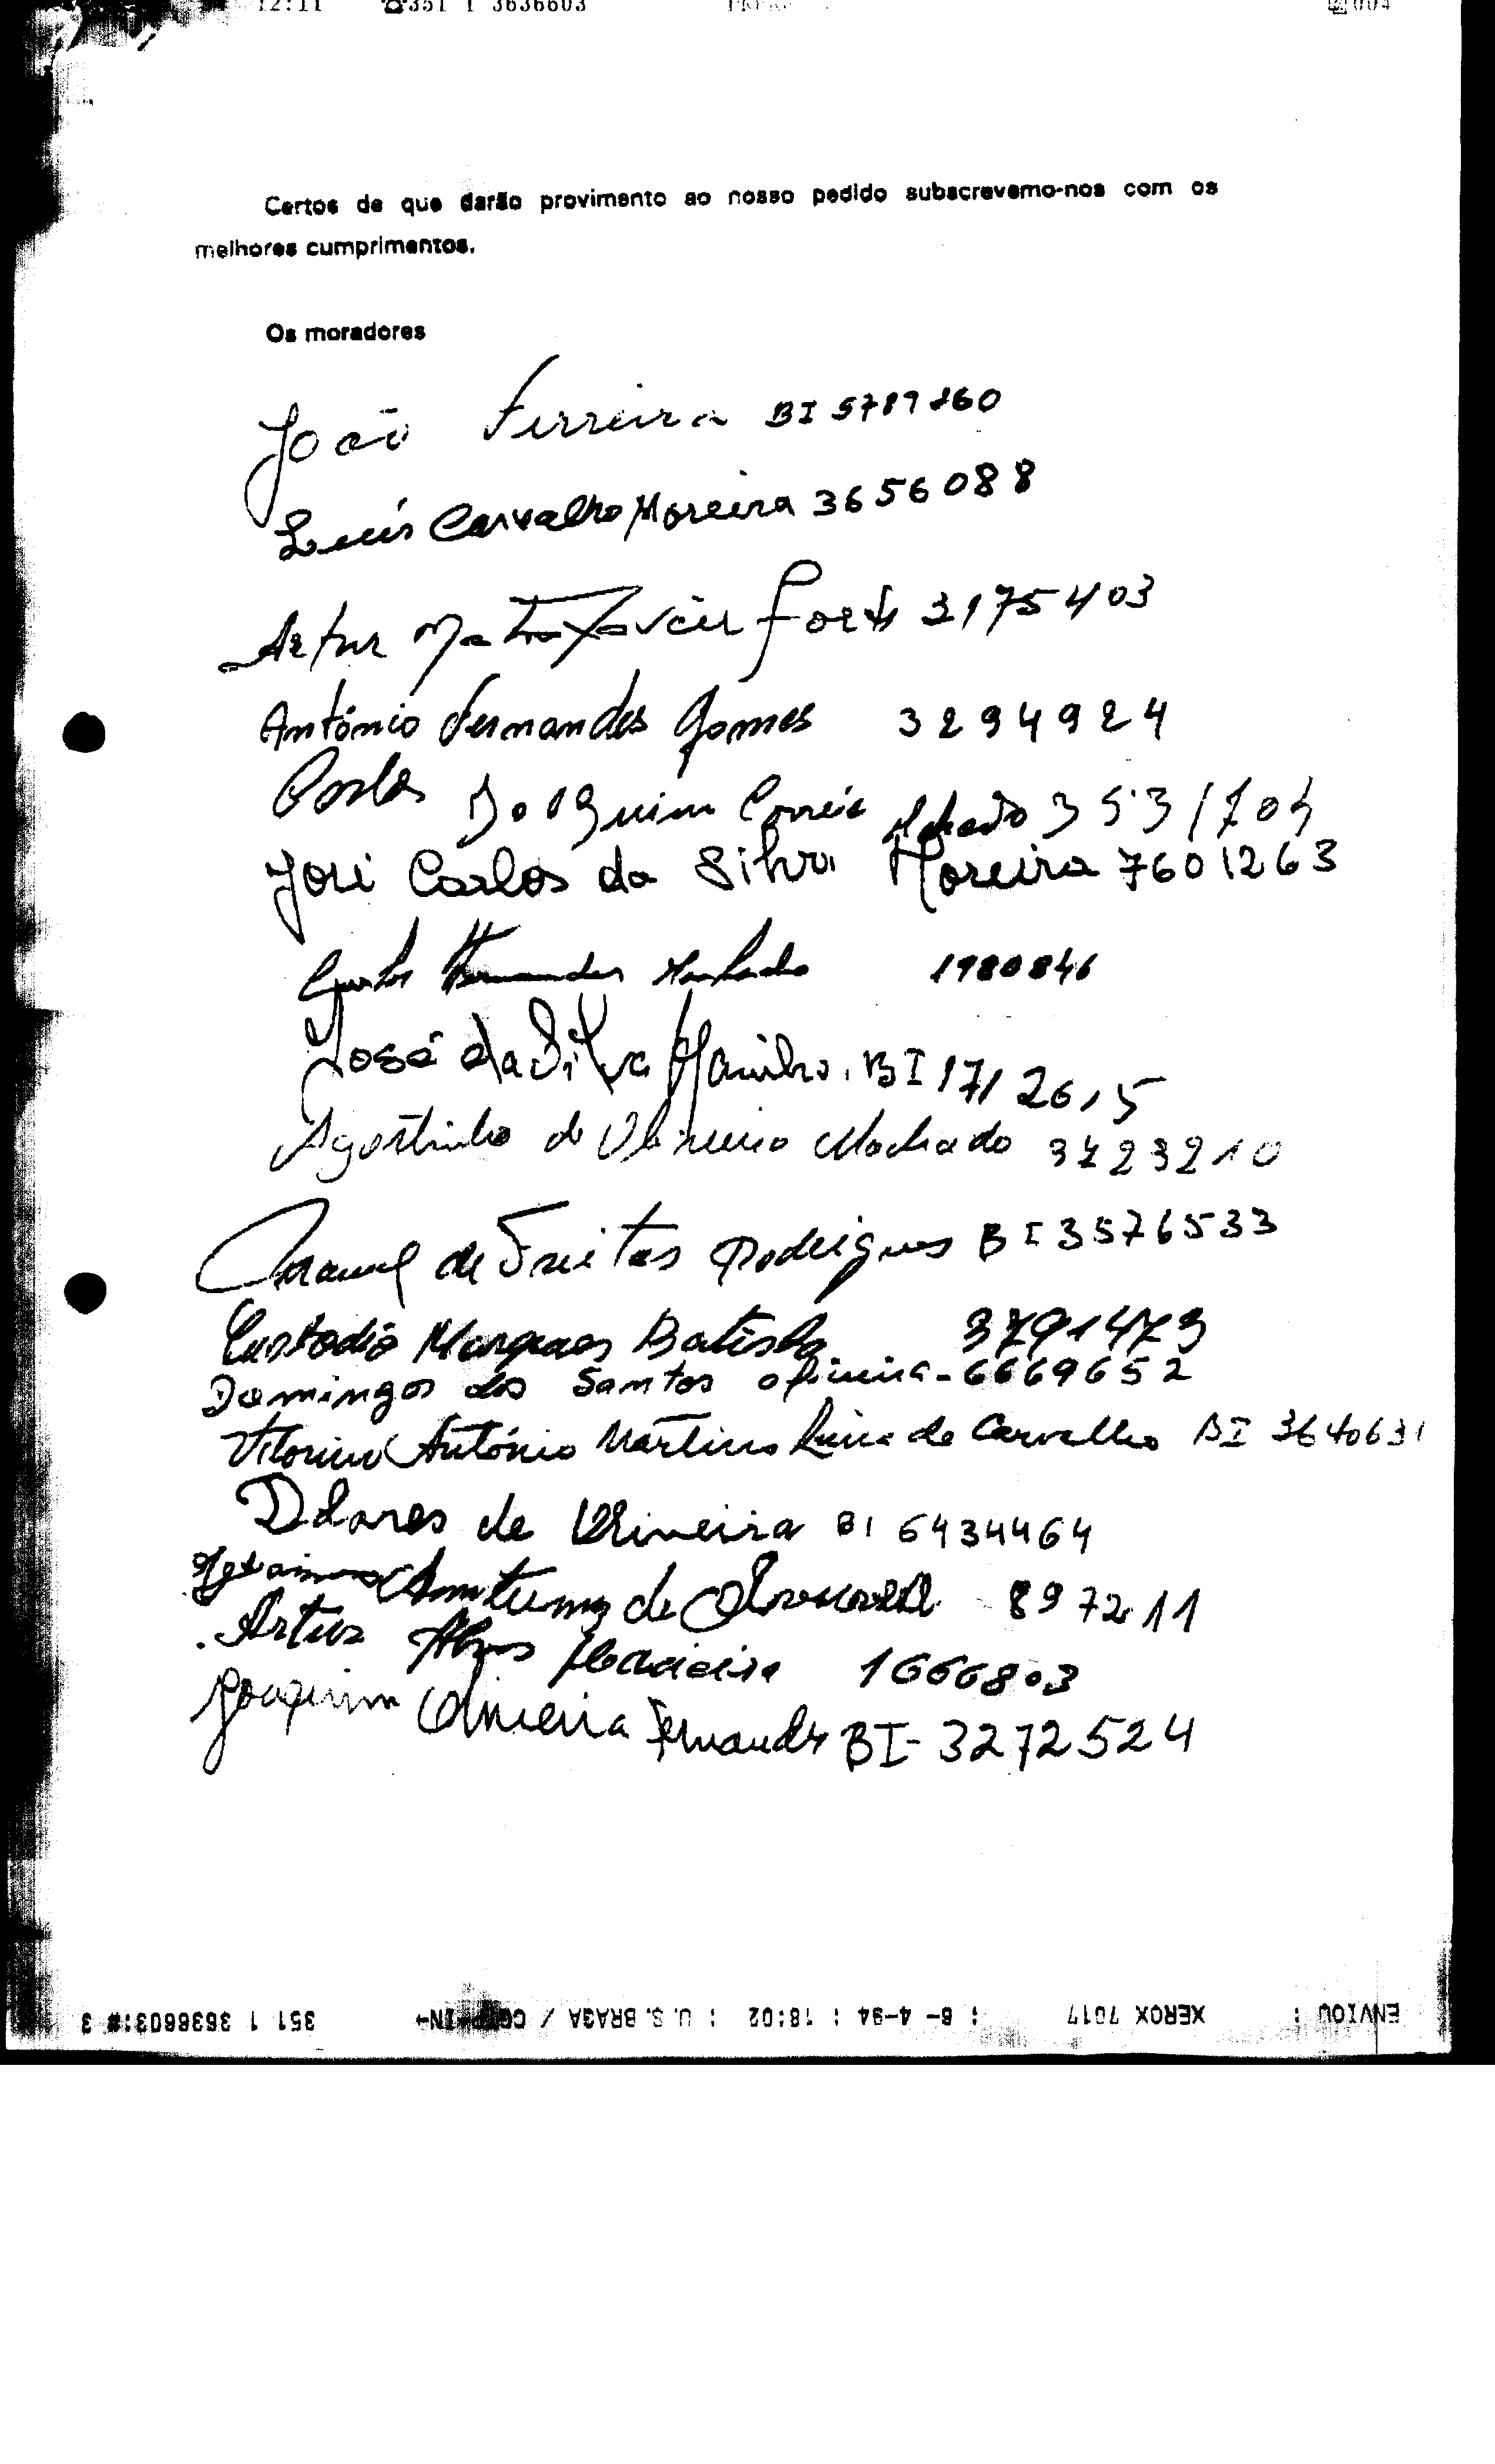 12:11 ☎351 1 3636603 004
Certos de que darão provimento ao nosso pedido subscrevemo-nos com os
melhores cumprimentos.
Os moradores
João Ferreira BI 5789260
Luís Carvalho Moreira 3656088
Artur Xavier 3175403
António Fernandes Gomes 3294924
Carlos Joaquim Correia Machado 3531704
José Carlos da Silva Moreira 7601263
Carlos Fernandes Machado 1980846
José da Silva Marinho. BI 1712615
Agostinho de Oliveira Machado 3723210
Manuel de Freitas Rodrigues BI 3576533
Custodio Marques Batista 3791473
Domingos dos Santos oliveira - 6669652
António Martins Lima de Carvalho BI 3640631
Dolores de Oliveira BI 6434464
de 897211
Artur Alves 1666803
Joaquim Oliveira Fernandes BI- 3272524
ENVIOU : XEROX 7017 : 6- 4-94 : 18:02 : U. S. BRAGA / 351 1 3636603:# 3